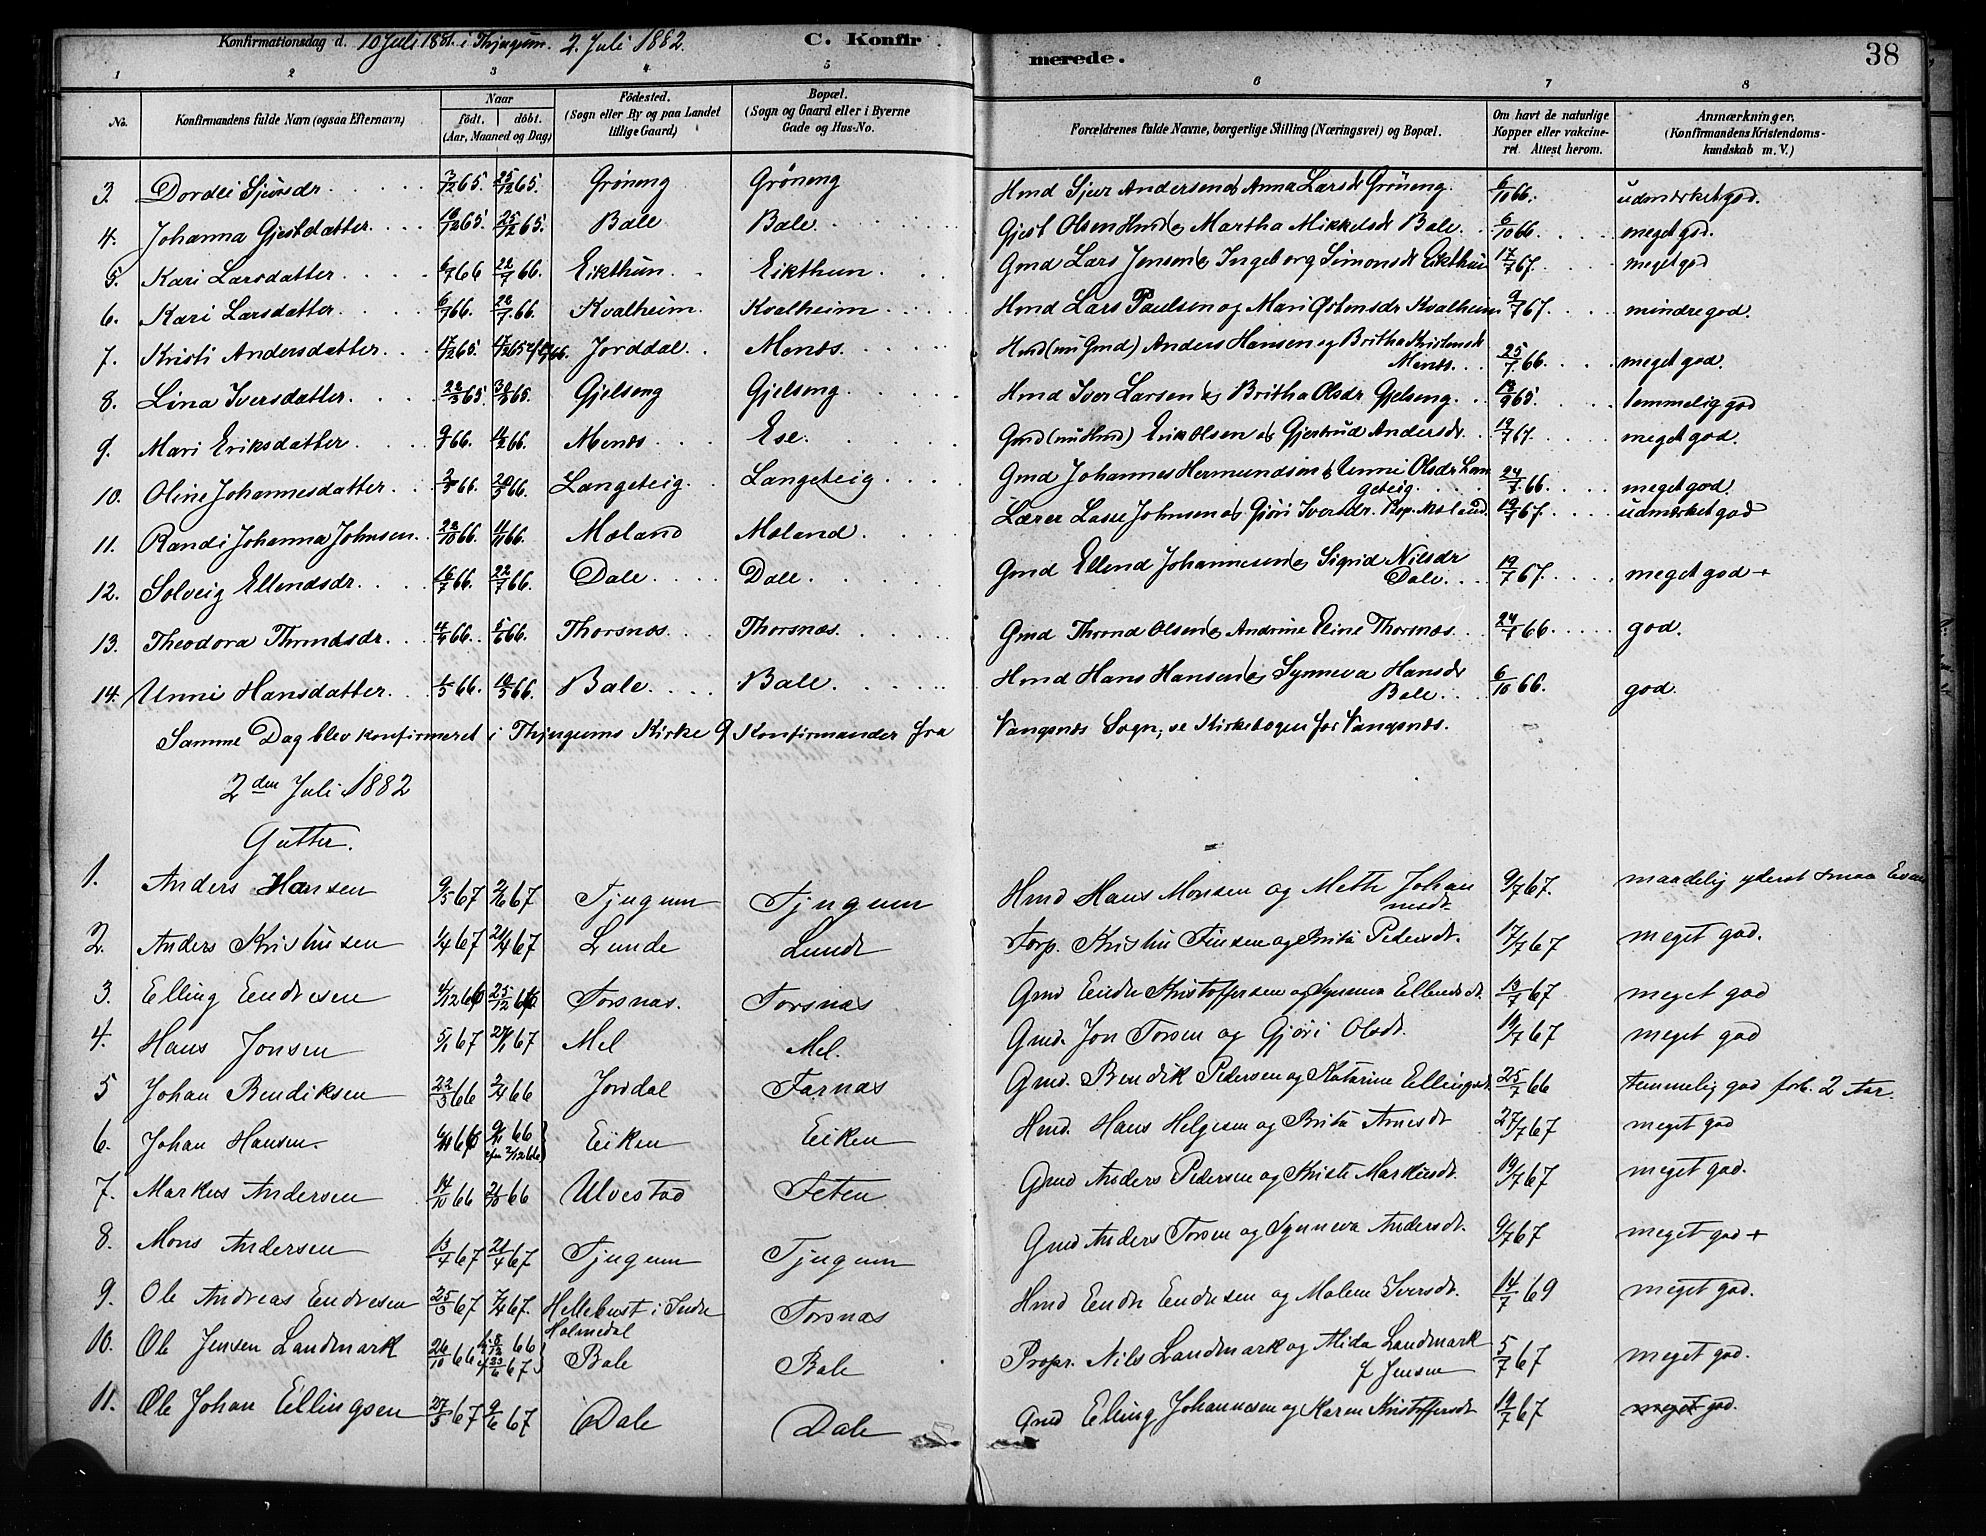 Konfirmationsdag d. 10 Juli 1881. i Thjugum. 2. Juli 1882. C. Konfirmerede. 38
1 2 3 4 5 6 7 8
No. Konfirmandens fulde Navn (ogsaa Efternavn) Naar født. døbt. (Aar, Maaned og Dag) Fødested. (Sogn eller By og paa Landet tillige Gaard) Bopæl. (Sogn og Gaard eller i Byerne Gade og Hus-No. Forældrenes fulde Navne, borgerlige Stilling (Næringsvei) og Bopæl. Om havt de naturlige Kopper eller vakcineret. Attest herom. Anmærkninger. (Konfirmandens Kristendomskundskab m. V.)
3. Dordei Sjursdr. 3/12 65. 25/12 65. Gröneng Gröneng Hmd Sjur Andersen og Anna Larsdr Gröneng. 6/10 66. udmærket god.
4. Johanna Gjestdatter 25/12 65. Bale Bale Gjest Olsen Hmd og Martha Mikkelsdr Bale. 6/10 66. meget god.
5. Kari Larsdatter 6/7 66 22/7 66. Eikthun. Eikthun Gmd Lars Jensen og Ingeborg Simonsdr Eikthun 17/7 67. meget god
6. Kari Larsdatter. 6/7 66. 22/7 66. Kvalheim. Kvalheim Hmd Lars Paulsen og Mari Østensdr Kvalheim 9/7 67. mindre god.
7. Kristi Andersdatter. Jorddal Menæs. Hmd (nu Gmd) Anders Hansen og Britha Kristensdr Menæs. 25/7 66. meget god.
8. Lina Iversdatter. Gjelseng Gjelseng. Hmd Iver Larsen og Britha Olsdr Gjelseng. 13/9 65. temmelig god
9. Mari Eriksdatter 66. 66. Menæs Ese. Gmd (nu Hmd) Erik Olsen og Gjertrud Andersdr. 19/7 67. meget god.
10. Oline Johannesdatter. 66. 66. Langeteig. Langeteig Gmd Johannes Hermundsen og Unni Olsdr Langeteig 24/7 66. meget god.
11. Randi Johanna Johnsen 22/10 66. 11/11 66. Mæland Mæland. Lærer Lasse Johnsen og Gjøri Iversdr. Bop. Mæland. 19/7 67. udmærket god
12. Solveig Ellendsdr. 16/7 66. 22/7 66. Dale. Dale. Gmd Ellend Johannesen og Sigrid Nilsdr Dale. 19/7 67. meget god +
13. Theodora Throndsdr. 66. 5/6 66. Thorsnæs. Thorsnæs. Gmd Thrond Olsen og Andrine Eline Thorsnæs. 24/7 66. god.
14. Unni Hansdatter. 1/5 66. 10/5 66. Bale. Bale. Hmd Hans Hansen og Synneva Hansdr Bale. 6/10 66. god.
Samme Dag blev konfirmeret i Thjugums Kirke 9 Konfirmander fra Vangsnæs Sogn; se Kirkebogen for Vangsnæs.
2den Juli 1882
Gutter.
1. Anders Hansen 9/5 67 67 Tjugum Tjugum Hmd Hans Monsen og Methe Johannesdt. 9/7 67. maadelig yderst smaa Evner
2. Anders Kristensen 1/4 67 21/4 67 Lunde Lunde Forp. Kristen Jensen og Brita Pedersdt. 17/7 67 meget god.
3. Elling Endresen 4/12 66 25/12 66 Torsnæs. Torsnæs Gmd Endre Kristoffersen og Synneva Ellendsdt. 13/7 67 meget god
4. Hans Jonsen 5/1 67 27/1 67 Mel Mel. Gmd. Jon Torsen og Gjøri Olsdt. 19/7 67 meget god
5 Johan Bendiksen 22/3 66 2/4 66 Jordal Farnæs Gmd. Bendik Pedersen og Katarine Ellingsdt. 25/7 66 temmelig god forb. 2 Aar.
6. Johan Hansen. 66 66 Eiken Eiken Hmd. Hans Helgesen og Brita Arnesdt 27/7 67 meget god
7. Markus Andersen 14/10 66 21/10 66 Ulvestad Feten Gmd Anders Pedersen og Kristi Markusdt. 19/7 67 meget god.
8. Mons Andersen 13/4 67 21/4 67 Tjugum Tjugum Gmd Anders Torsen og Synneva Andersdt. 9/7 67 meget god +
9. Ole Andreas Endresen 25/3 67 7/4 67. Hellebust i Indre Holmedal Torsnæs Hmd Endre Endresen og Malene Iversdt. 14/7 69 meget god.
10. Ole Jensen Landmark 26/10 66 66 67 Bale Bale Propr. Nils Landmark og Alida Landmark f Jensen 5/7 67 meget god.
11. Ole Johan Ellingsen 27/5 67 9/6 67 Dale Dale Gmd Elling Johannesen og Karen Kristoffersdt 19/7 67 meget god.